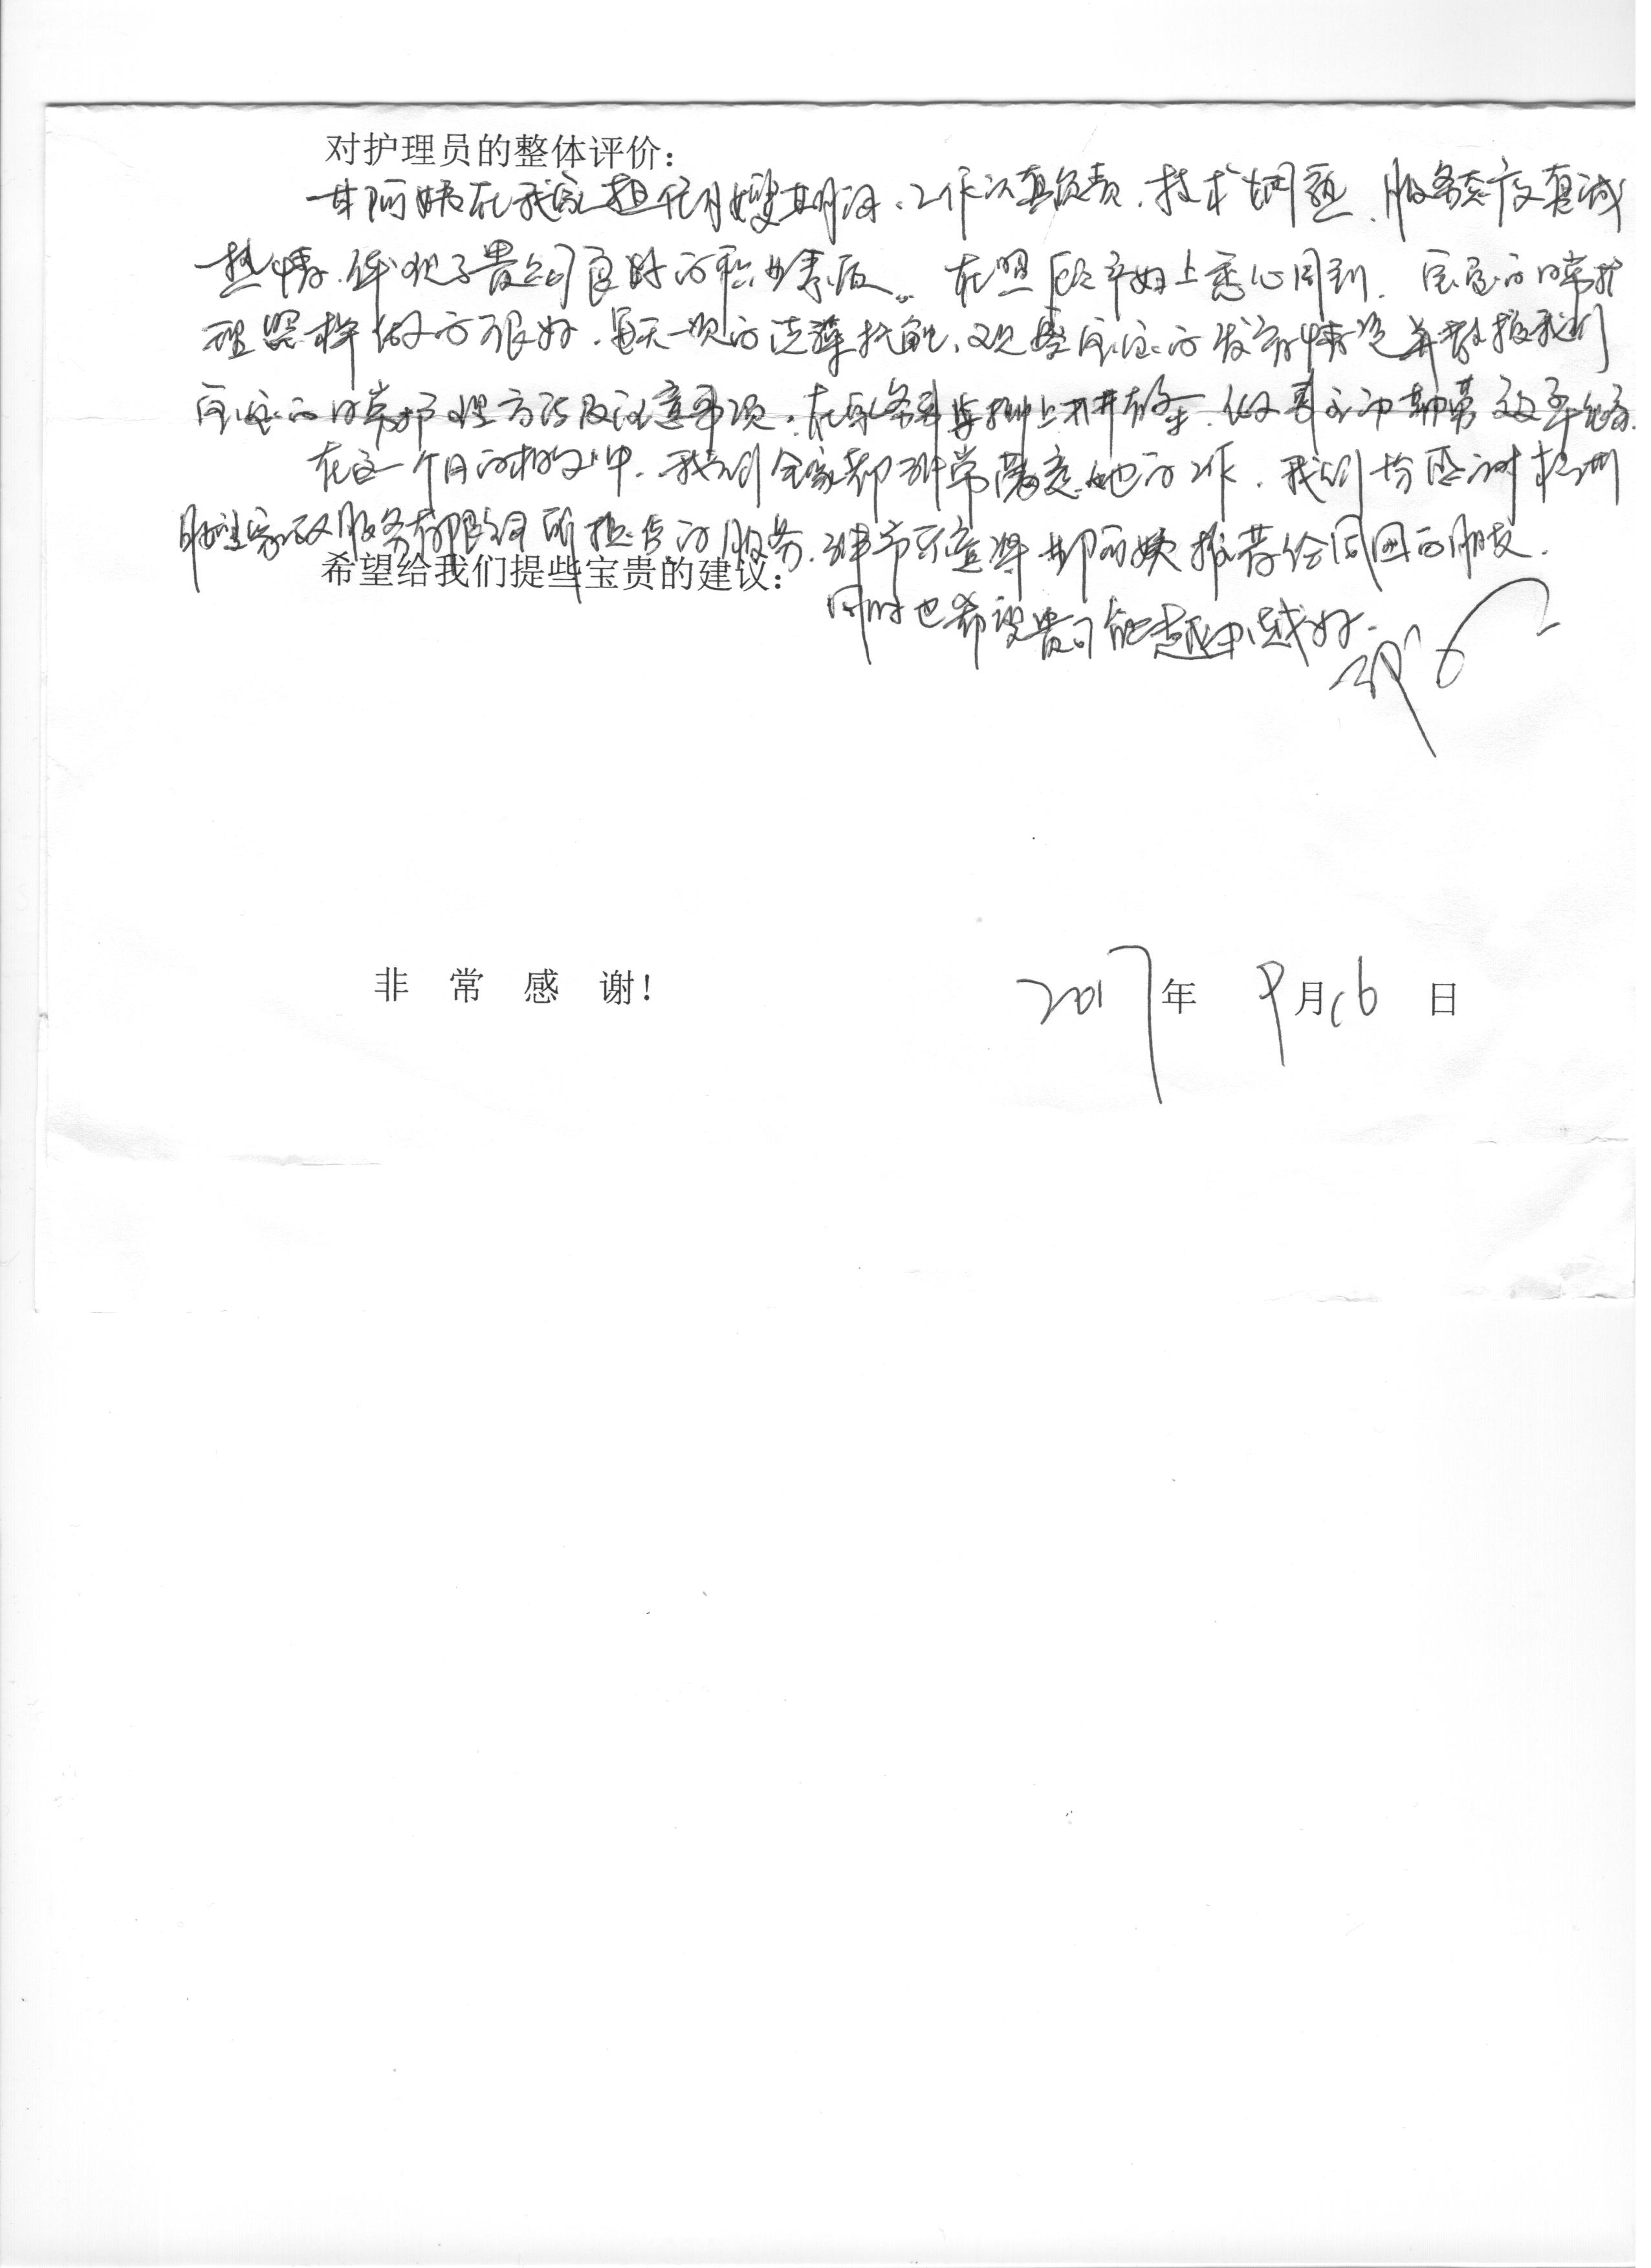 对护理员的整体评价：
甘阿姨在我家担任月嫂期间，工作认真负责，技术娴熟，服务态度真诚
热情，体现了贵公司良好的职业素质。在照顾产妇上悉心周到，宝宝的日常护
理照样做的很好，每天一次的洗澡抚触，观察宝宝的发育情况并教授我们
宝宝的日常护理方法及注意事项，在上不讲，做事主动
在这一个月的相处中，我们全家都非常满意她的工作，我们十分感谢杭州
家政服务有限公司所提供的服务，阿姨推荐给周围的朋友。
希望给我们提些宝贵的建议：
同时也希望贵司能越来越好。
非 常 感 谢！
2017年 9月16 日